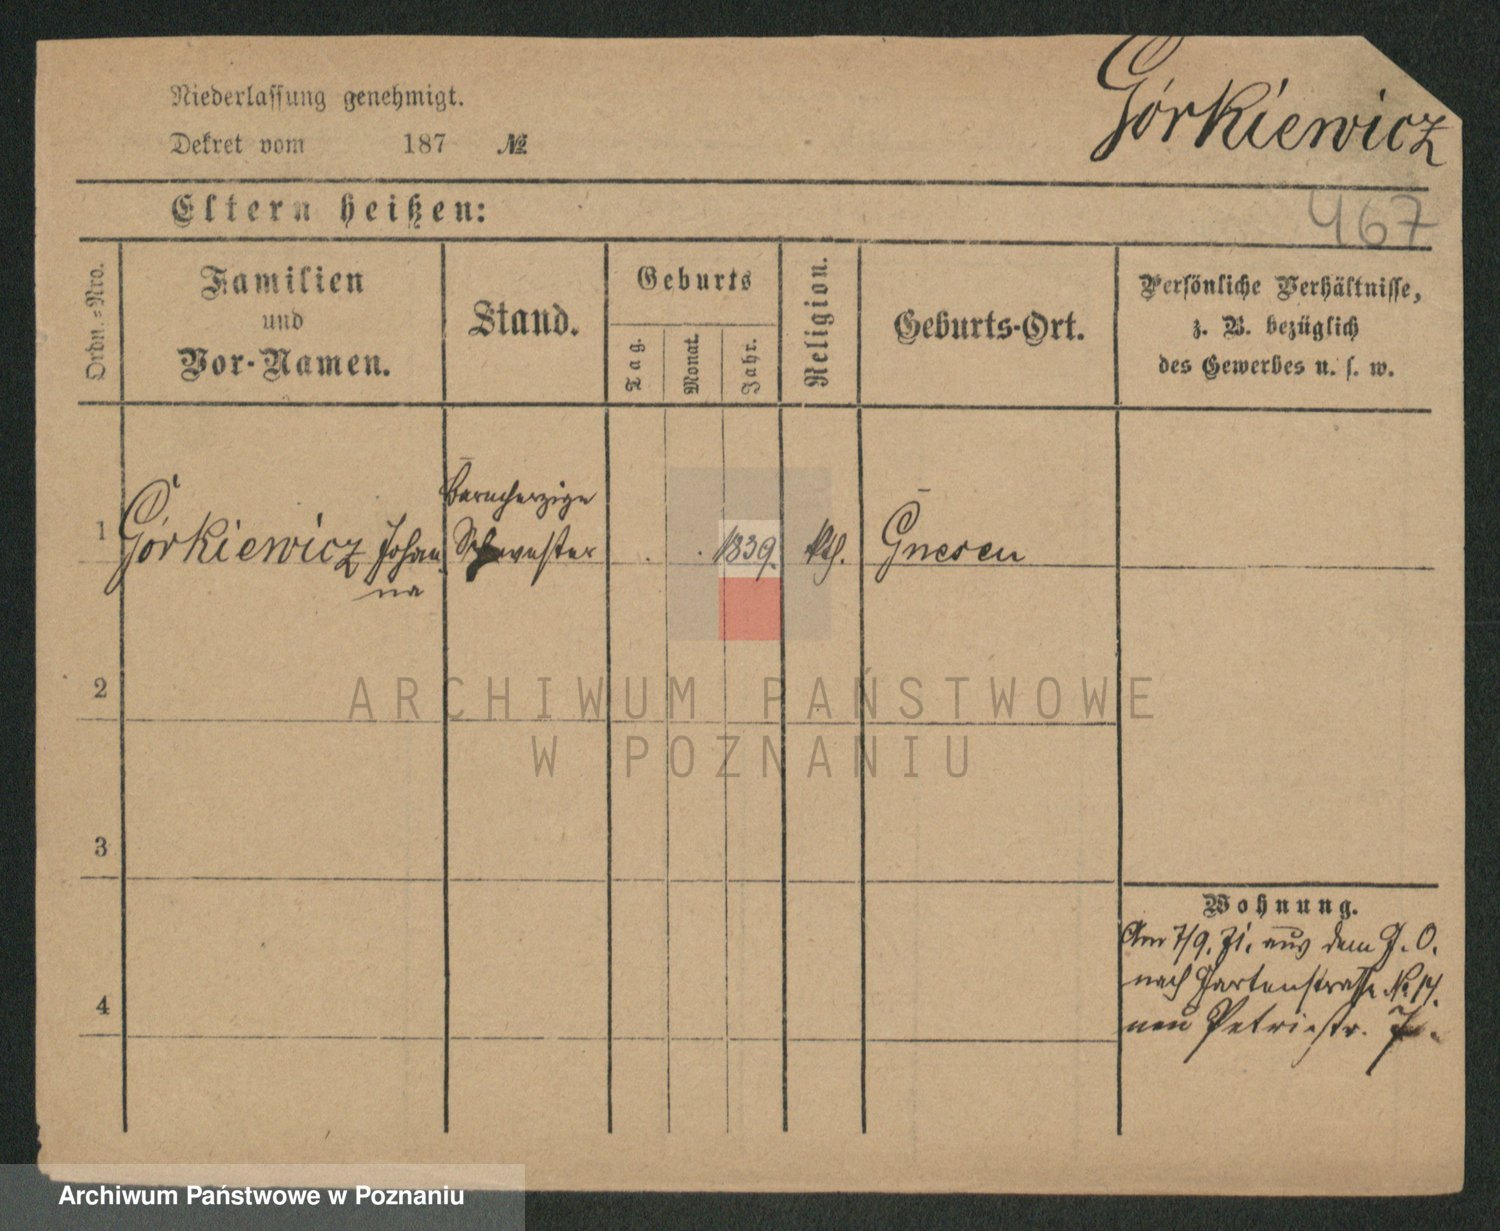 Górkiewicz
Niederlassung genehmigt.
Dekret vom 187 №
467
Eltern heißen:
Ordn.=Nro.
Familien
und
Vor-Namen.
Stand.
Geburts
Tag.
Monat.
Jahr.
Religion.
Geburts-Ort.
Persönliche Verhältnisse,
z. B. bezüglich
des Gewerbes u. s. w.
1
Górkiewicz Johan
na
Barmherzige
Schwester
1839.
kth.
Gnesen
2
ARCHIWUM PAŃSTWOWE
W POZNANIU
3
Wohnung.
Am 7/9. 71. aus dem J. O.
nach Gartenstraße №
neu Petristr.
4
Archiwum Państwowe w Poznaniu